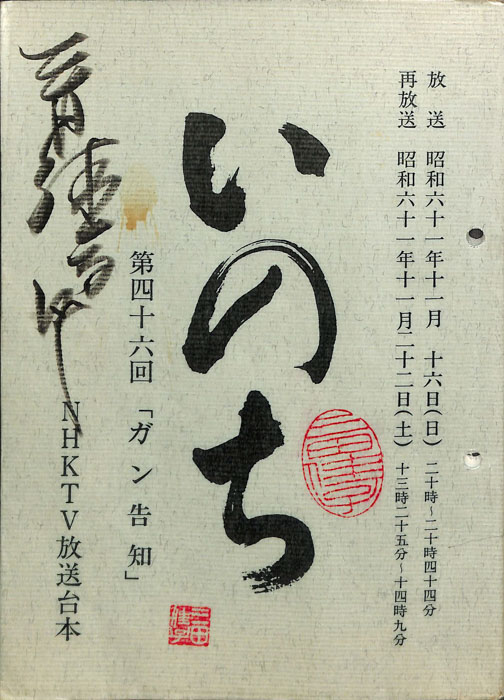 放送 昭和六十一年十一月 十六日(日) 二十時～二十時四十四分
再放送 昭和六十一年十一月二十二日(土) 十三時二十五分～十四時九分
いのち
第四十六回 「ガン告知」
NHKTV放送台本